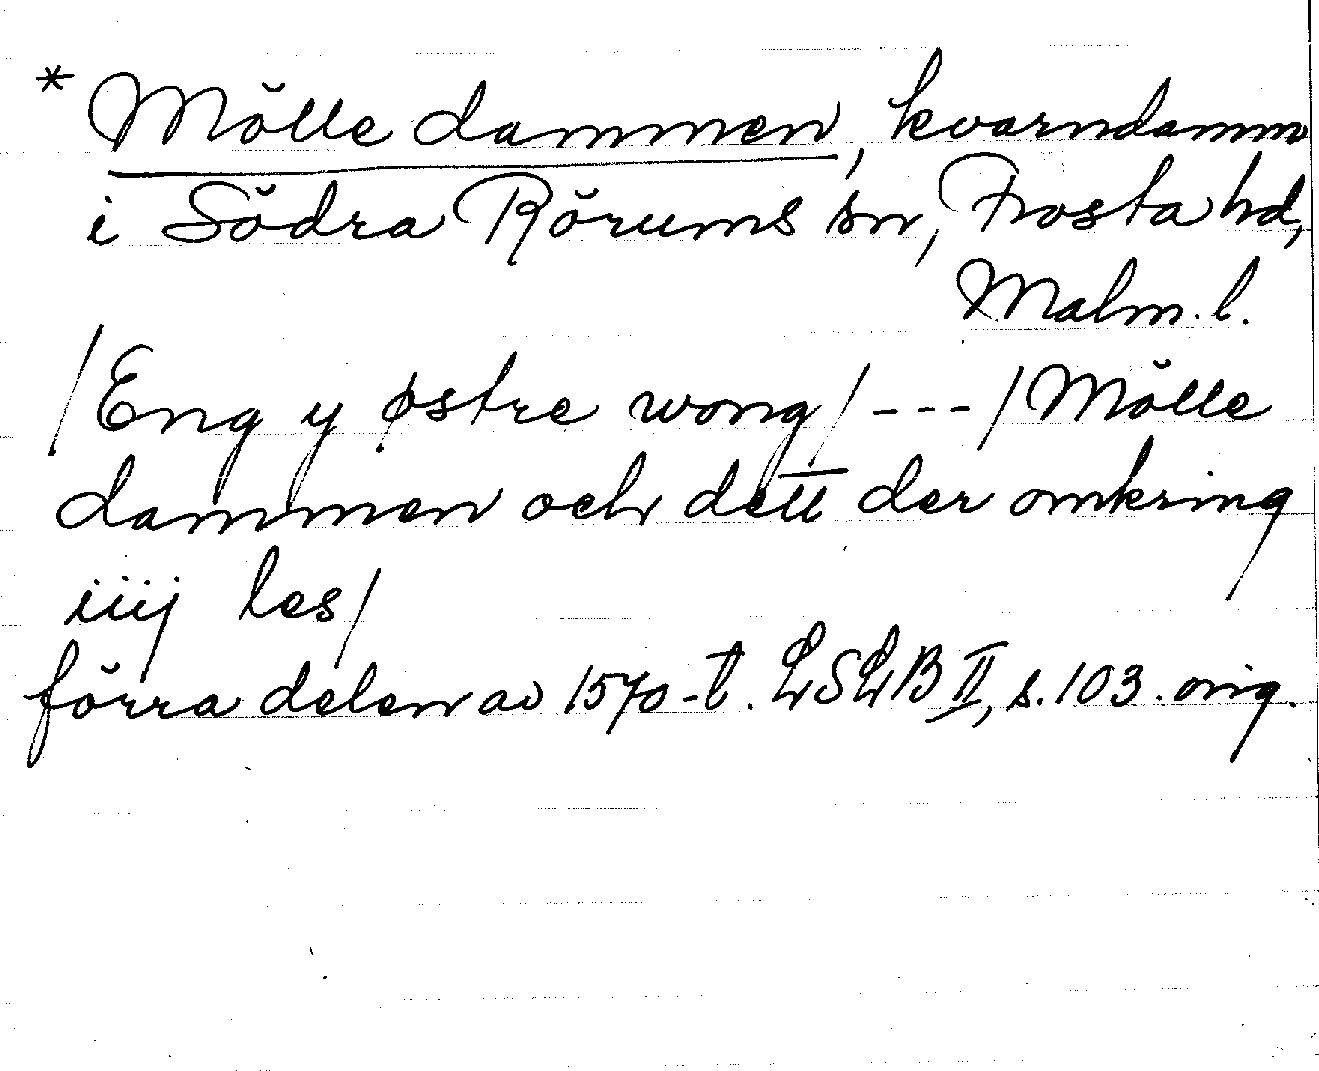 * Mölle dammen, kvarndamm
i Södra Rörums sn, Frosta hd,
Malm. l.
/Eng y østre wong/ --- / Mölle
dammen och dett der omkring
iiij les/
förra delen av 1570-t. LSLB II, s. 103. orig.